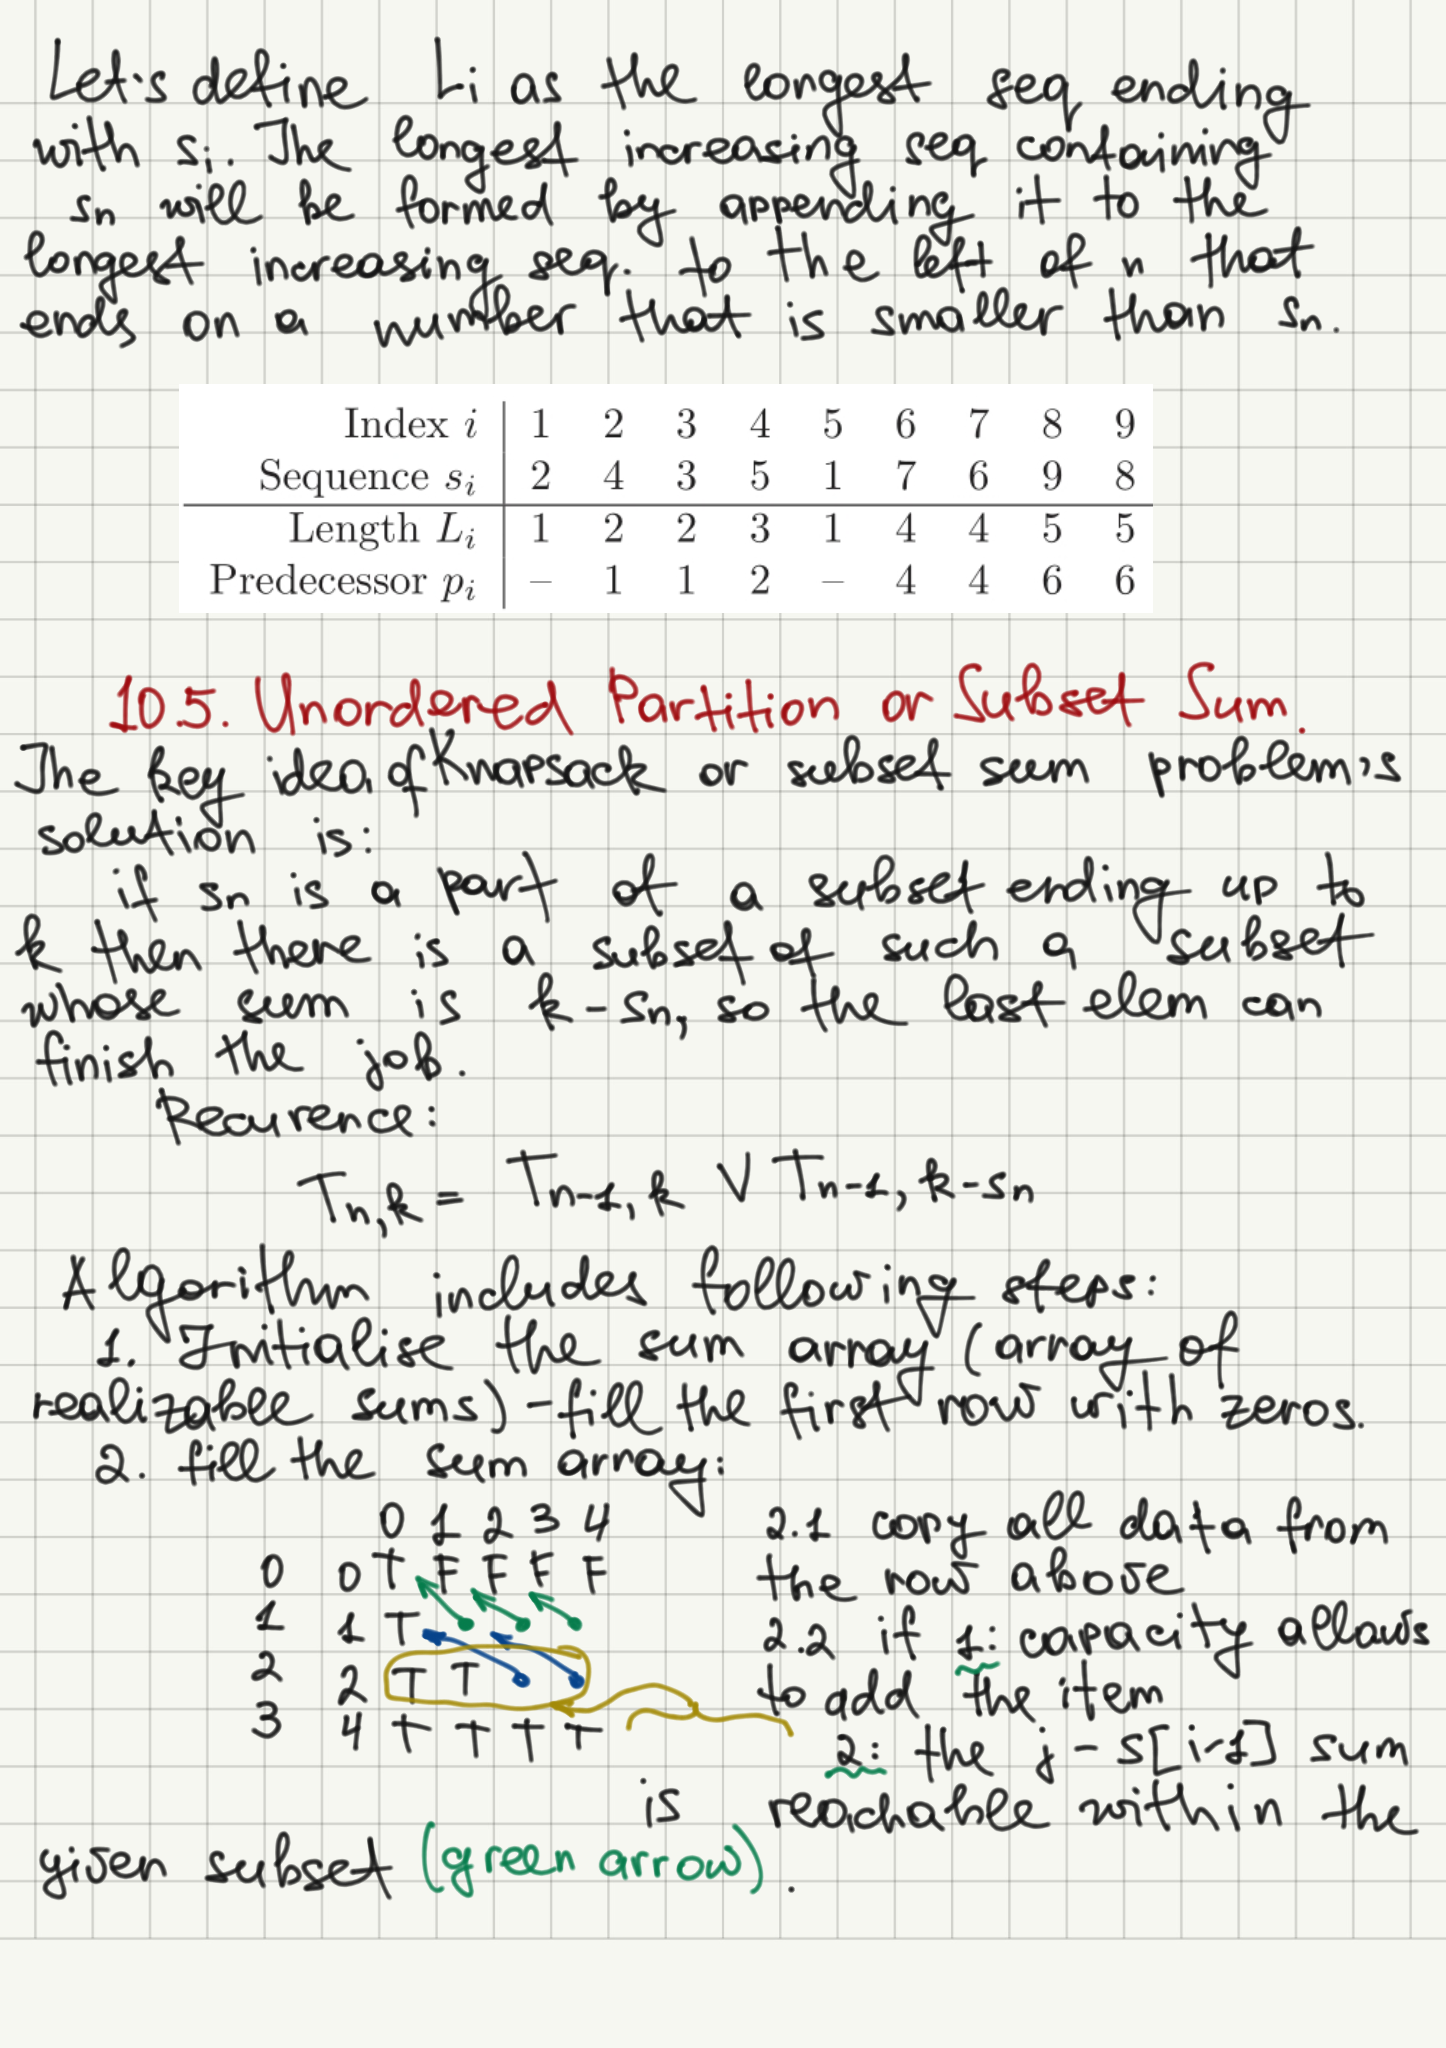 Let's define Li as the longest seq ending
with si. The longest increasing seq containing
sn will be formed by appending it to the
longest increasing seq. to the left of n that
ends on a number that is smaller than sn.
Index i 1 2 3 4 5 6 7 8 9
Sequence si 2 4 3 5 1 7 6 9 8
Length Li 1 2 2 3 1 4 4 5 5
Predecessor pi – 1 1 2 – 4 4 6 6
10.5. Unordered Partition or Subset Sum.
The key idea of Knapsack or subset sum problem's
solution is:
if sn is a part of a subset ending up to
k then there is a subset of such a subset
whose sum is k-sn, so the last elem can
finish the job.
Recurence:
Tn,k = Tn-1,k V Tn-1,k-sn
Algorithm includes following steps:
1. Initialise the sum array (array of
realizable sums) - fill the first row with zeros.
2. fill the sum array:
0 1 2 3 4
0 0 T F F F F
1 1 T
2 2 T T
3 4 T T T T
2.1 copy all data from
the row above
2.2 if 1: capacity allows
to add the item
2: the j-s[i-1] sum
is reachable within the
given subset (green arrow).